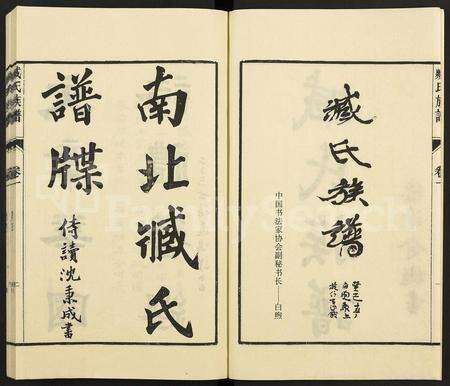 臧氏族譜
癸巳
中国书法家协会副秘书长——白煦
臧氏族譜
卷一
南北臧氏
譜牒
侍讀沈秉成書
臧氏族譜
卷一
FamilySearch